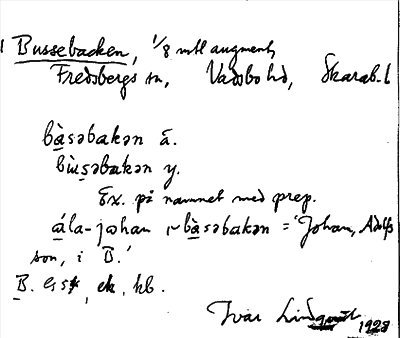 Bussebacken, 1/8 mtl augment,
Fredsbergs sn, Vadsbo hd, Skarab. l
bàsəbakən ä.
bùsəbakən y.
Ex. på namnet med prep.
ála-johan i bàsəbakən = 'Johan, Adolfs
son, i B.'
B. ek, kb.
Ivar Lindquist 1928